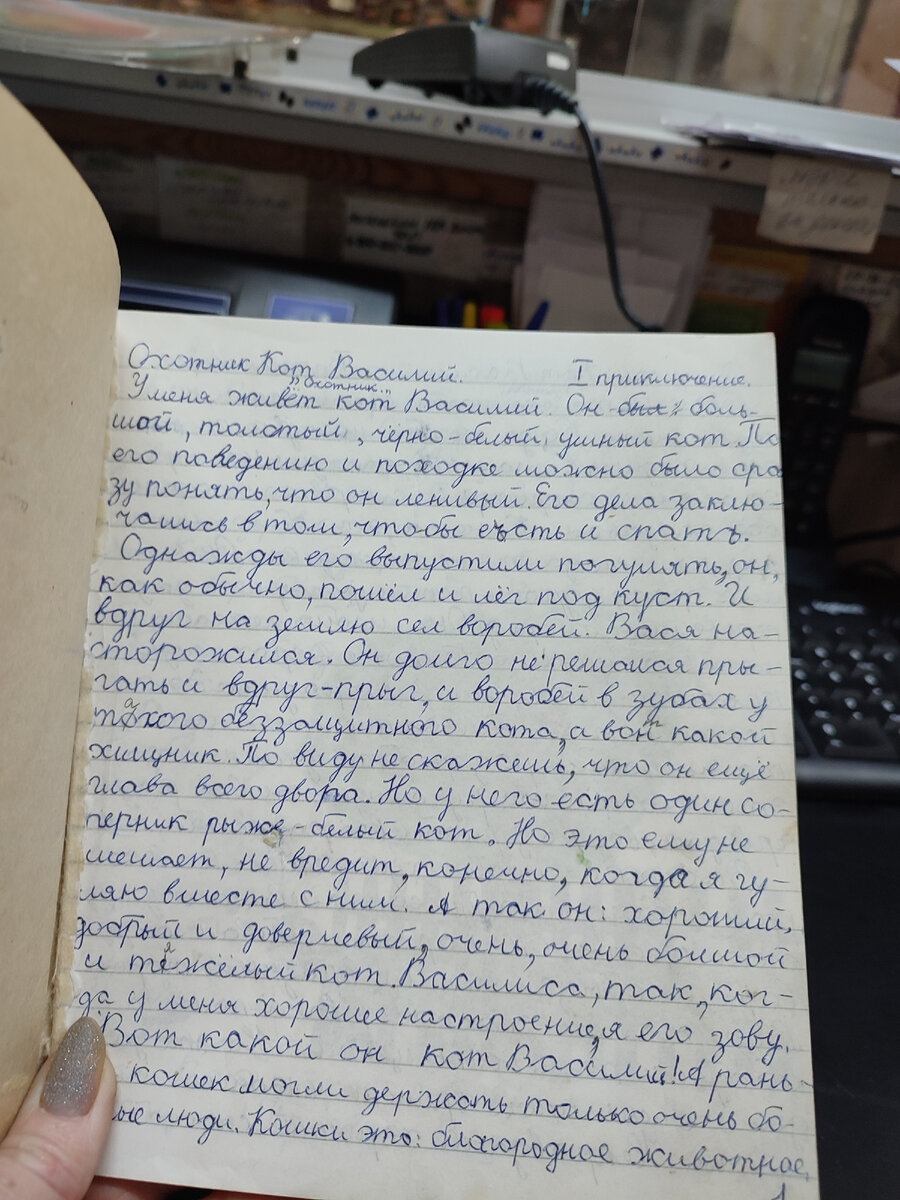 Охотник Кот Василий. I приключение.
"охотник"
У меня живёт кот Василий. Он был: боль-
шой, толстый, чёрно-белый, умный кот. По
его поведению и походке можно было сра
зу понять, что он ленивый. Его дела заклю-
чались в том, чтобы есть и спать.
Однажды его выпустили погулять, он,
как обычно, пошёл и лёг под куст. И
вдруг на землю сел воробей. Вася на-
сторожился. Он долго не решался пры-
гать и вдруг-прыг, и воробей в зубах у
такого беззащитного кота, а вон какой
хищник. По виду не скажешь, что он ещё
глава всего двора. Но у него есть один со-
перник рыже-белый кот. Но это ему не
мешает, не вредит, конечно, когда я гу-
ляю вместе с ним. А так он: хороший,
добрый и доверчевый, очень, очень болшой
и тяжёлый кот. Василиса, так, ког-
да у меня хорошее настроение, я его зову.
Вот какой он кот Василий! А рань-
кошек могли держать только очень бо-
ые люди. Кошки это: благородное животное,
1